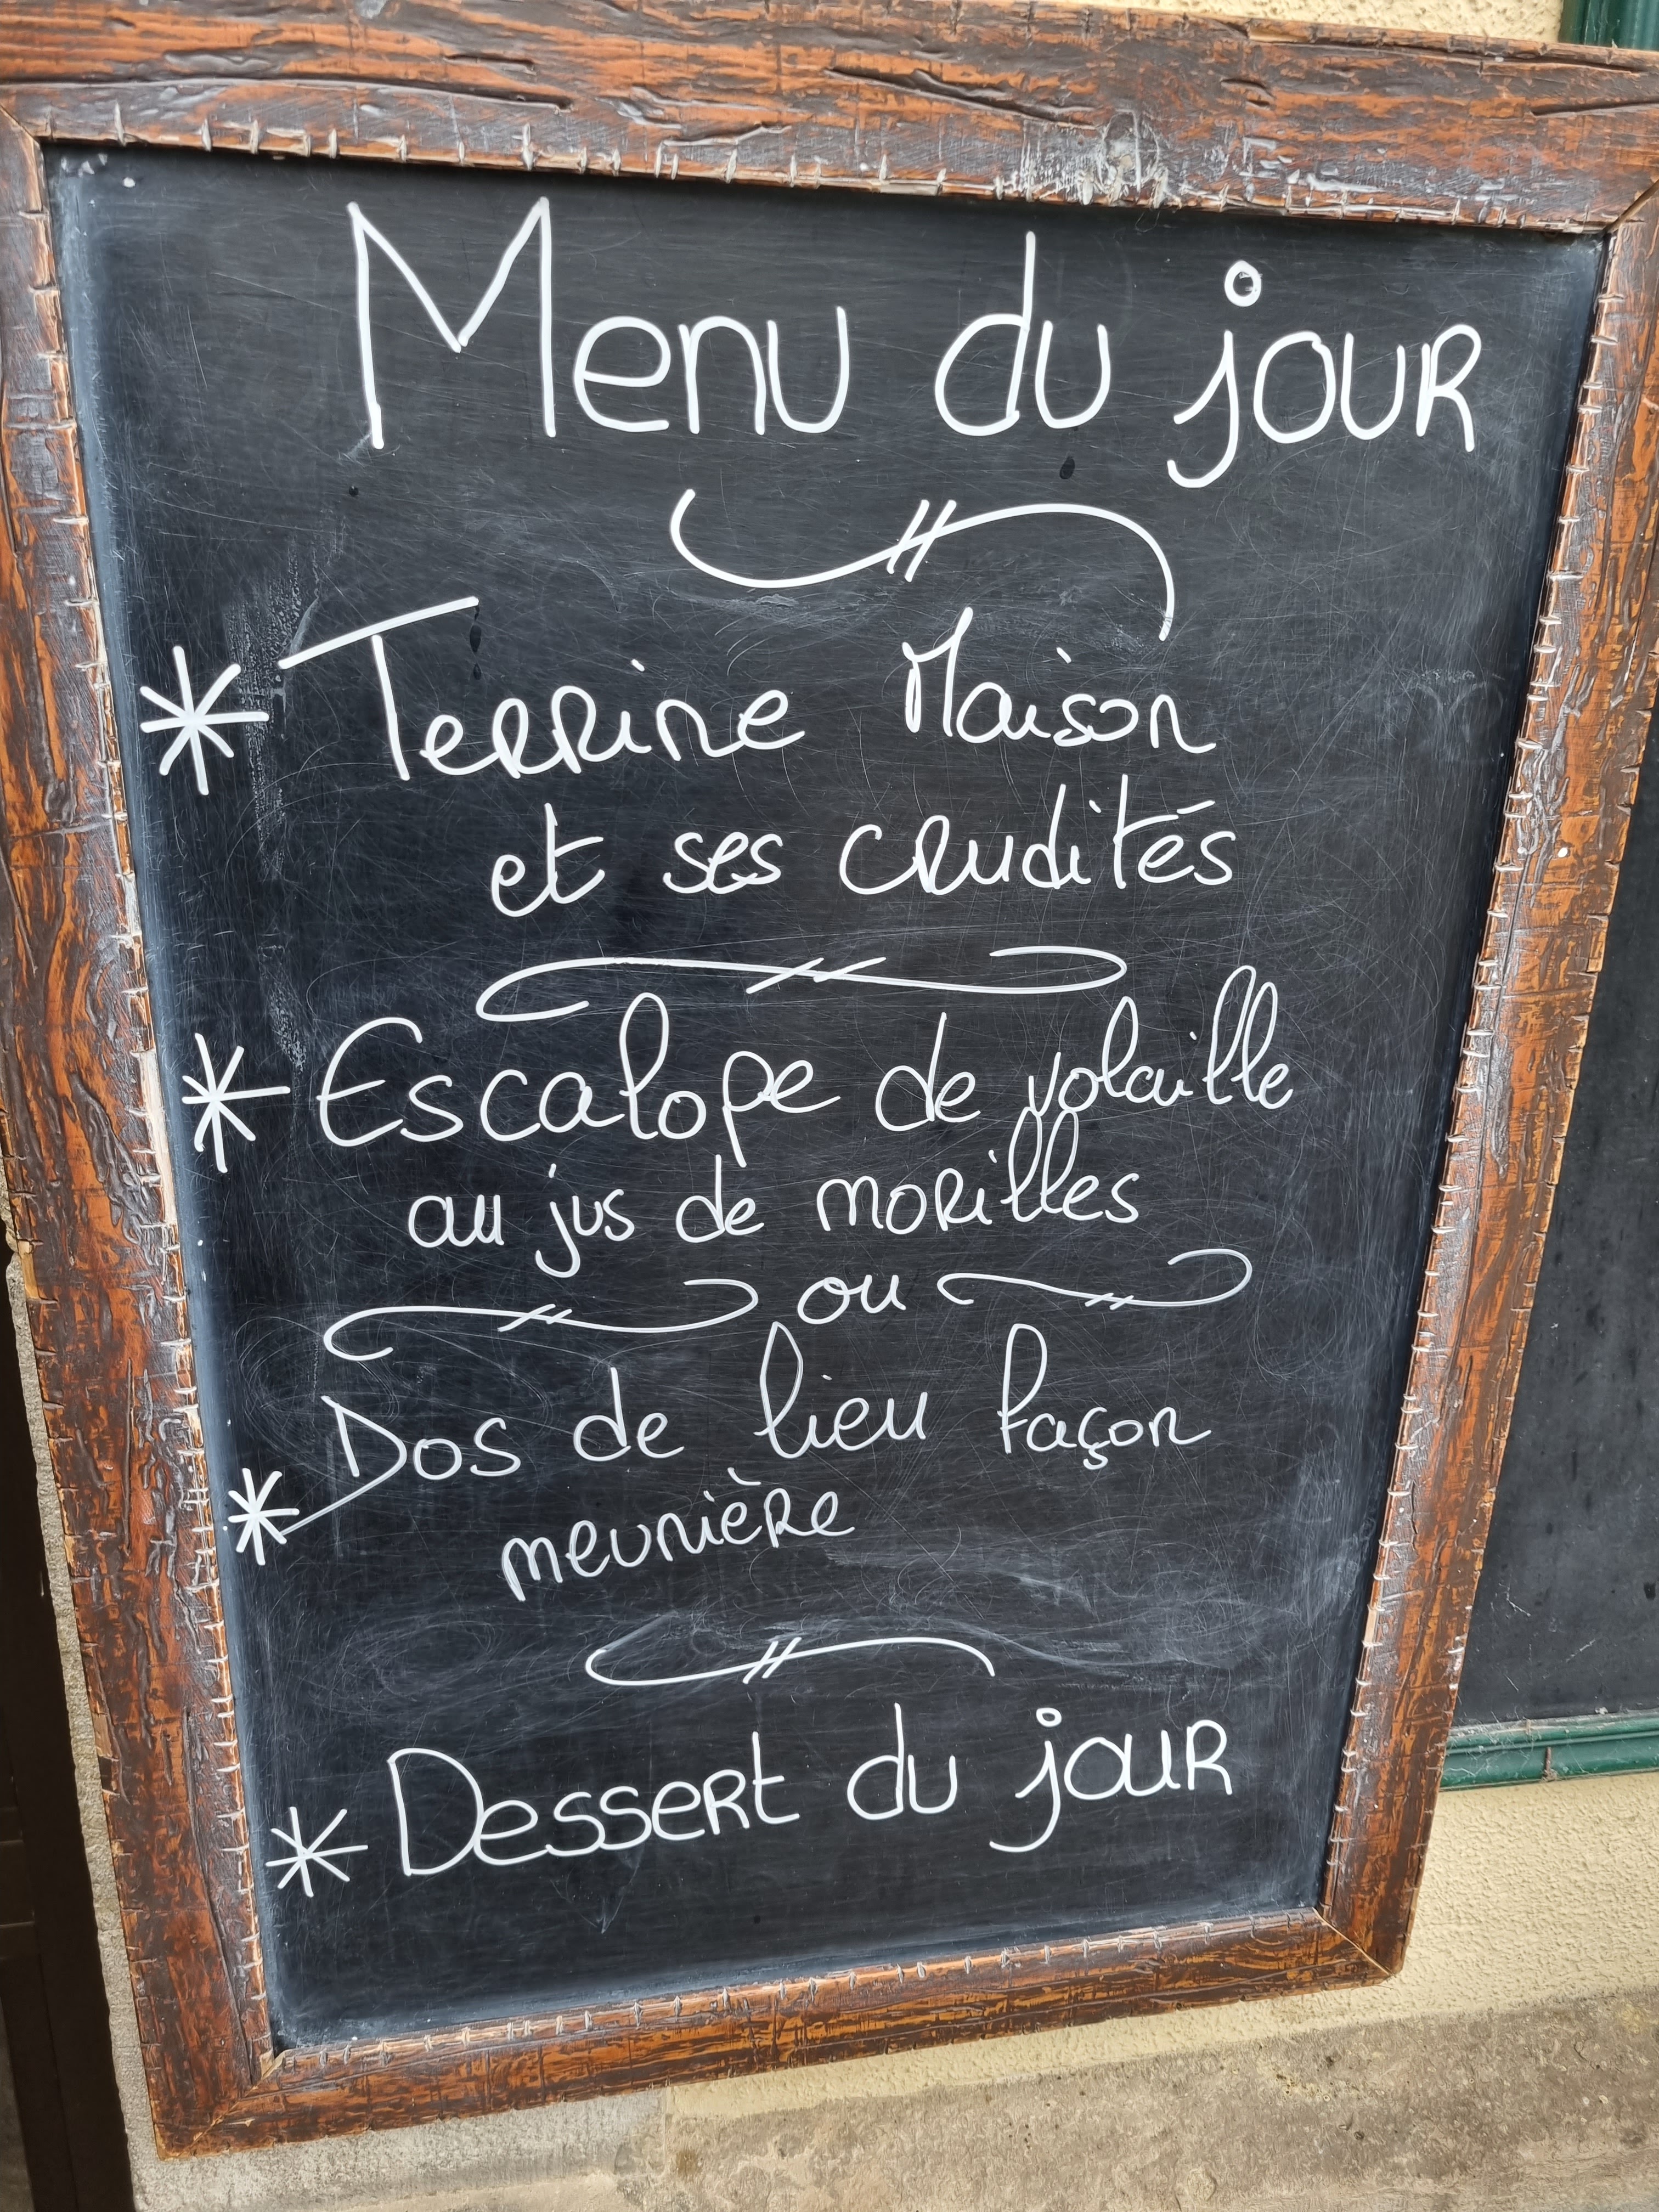 Menu du jour
* Terrine Maison
et ses crudités
* Escalope de volaille
au jus de morilles
ou
* Dos de lieu façon
meunière
* Dessert du jour